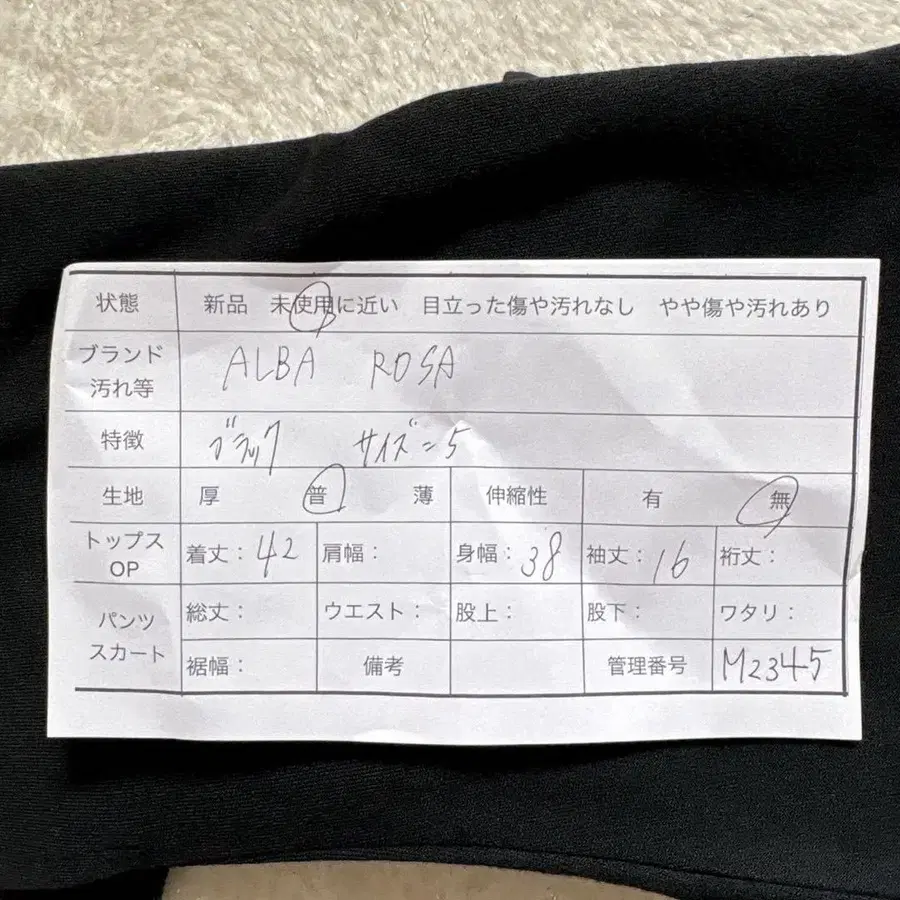 状態 新品 未使用に近い 目立った傷や汚れなし やや傷や汚れあり
ブランド
汚れ等 ALBA ROSA
特徴 ブラック サイズ=5
生地 厚 普 薄 伸縮性 有 無
トップス
OP 着丈:42 肩幅: 身幅:38 袖丈:16 裄丈:
パンツ
スカート 総丈: ウエスト: 股上: 股下: ワタリ:
裾幅: 備考 管理番号 M2345